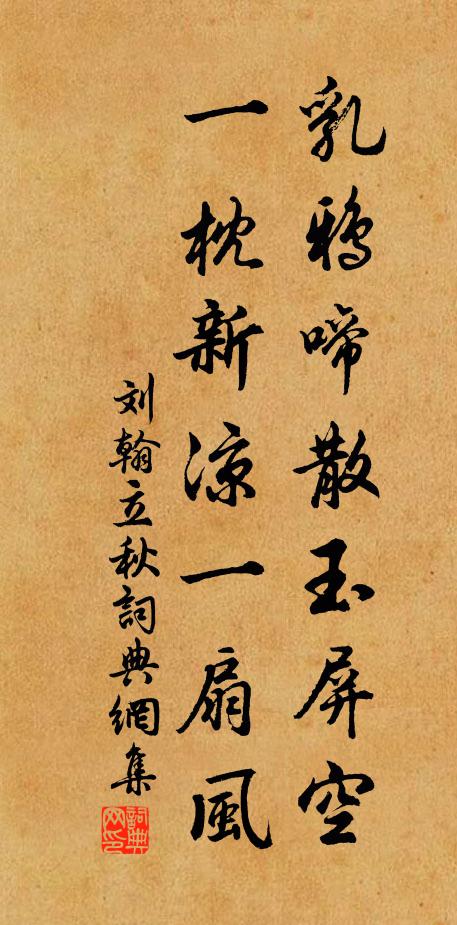 乳鴉啼散玉屏空
一枕新涼一扇風
刘翰立秋詞典網集
詞典网印